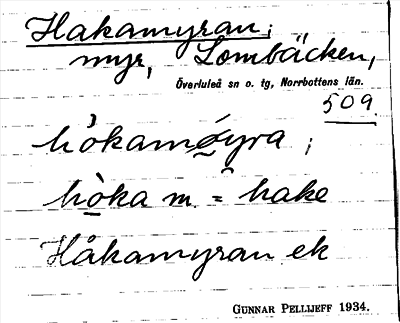 Hakamyran;
myr, Lombäcken,
Överluleå sn o. tg, Norrbottens län.
509
hòkamǫ́yra ;
hò̱ka m. = hake
Håkamyran ek
GUNNAR PELLIJEFF 1934.